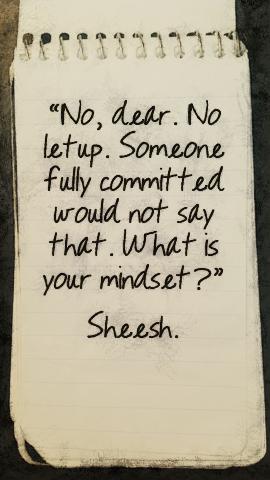 “No, dear. No
letup. Someone
fully committed
would not say
that. What is
your mindset?”
Sheesh.